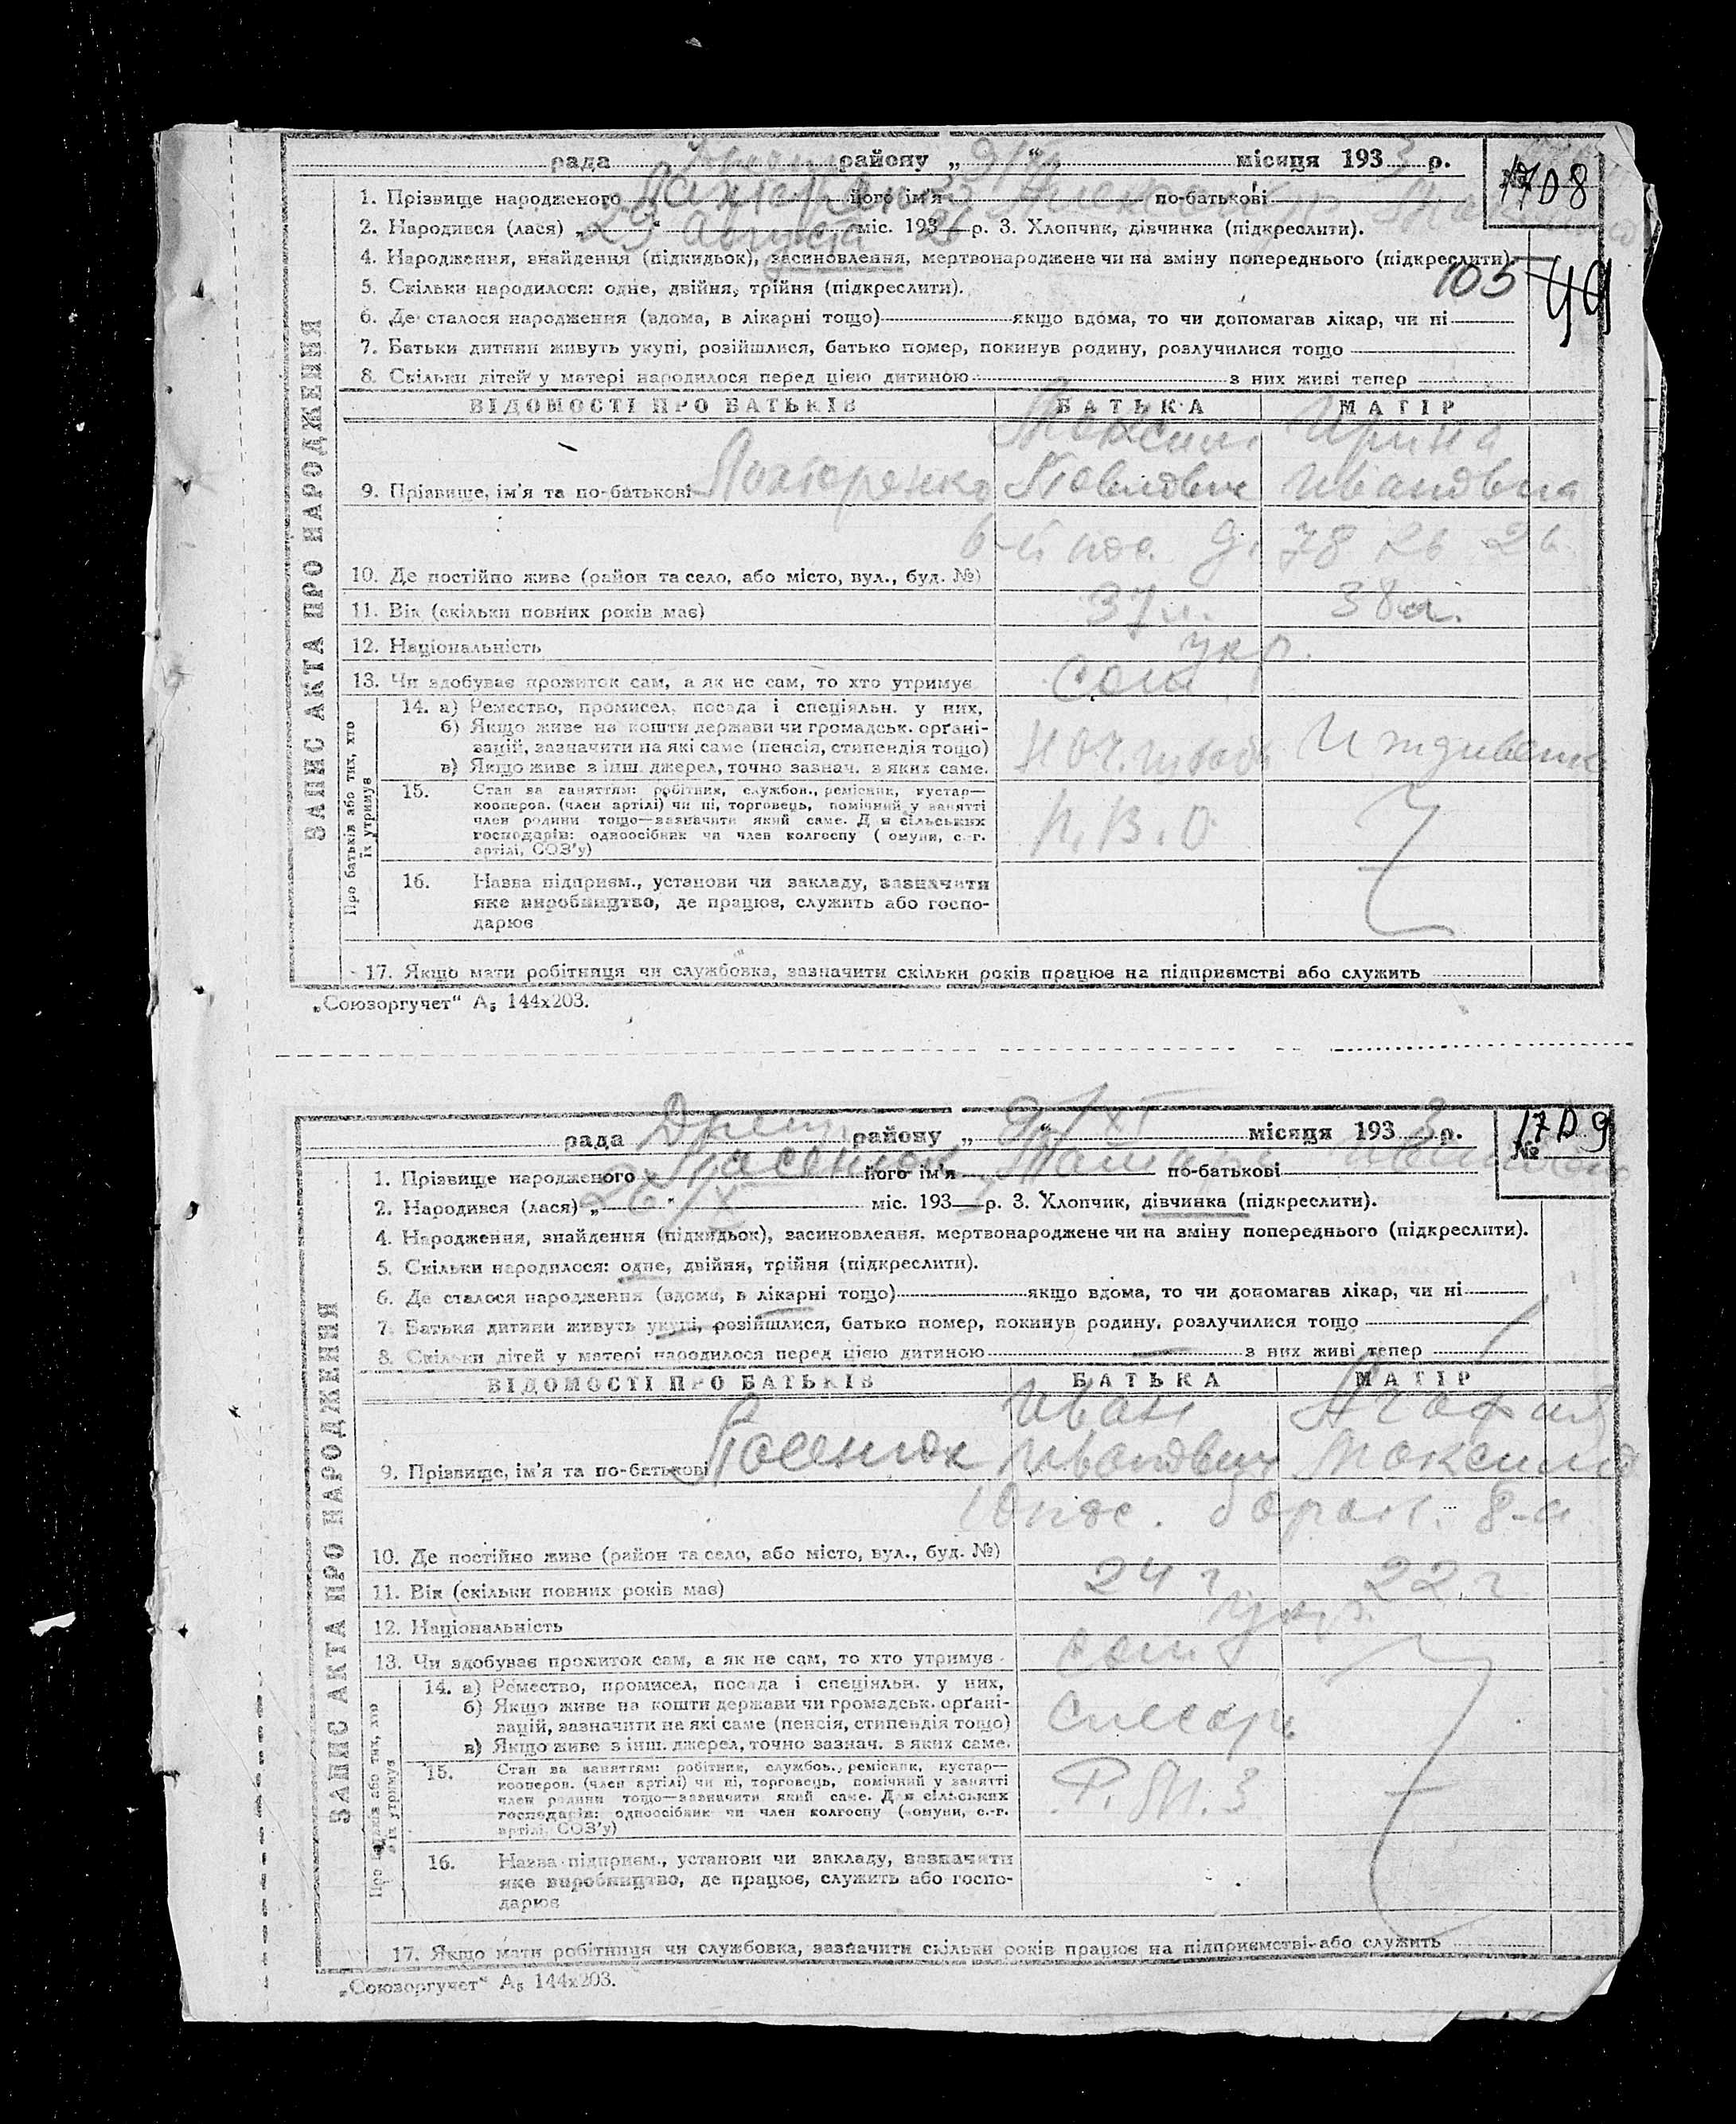 рада району „ 9/XI “ місяця 193 3 р.
№ 1708
1. Прізвище народженого його ім'я по-батькові
2. Народився (лася) „ 29 “ августа міс. 193 26 р. 3. Хлопчик, дівчинка (підкреслити).
4. Народження, знайдення (підкидьок), засиновлення, мертвонароджене чи на зміну попереднього (підкреслити).
105 49
5. Скільки народилося: одне, двійня, трійня (підкреслити).
6. Де сталося народження (вдома, в лікарні тощо) якщо вдома, то чи допомагав лікар, чи ні
7. Батьки дитини живуть укупі, розійшлися, батько помер, покинув родину, розлучилися тощо
8. Скільки дітей у матері народилося перед цією дитиною з них живі тепер
ЗАПИС АКТА ПРО НАРОДЖЕННЯ
ВІДОМОСТІ ПРО БАТЬКІВ БАТЬКА МАТІР
Максим Ирина
9. Прізвище, ім'я та по-батькові Павлович Ивановна
6-й пос. д. 78 кв 26
10. Де постійно живе (район та село, або місто, вул., буд. №)
11. Вік (скільки повних років має) 37 л. 38 л.
12. Національність укр.
13. Чи здобуває прожиток сам, а як не сам, то хто утримує сам
Про батьків або тих, хто їх утримує
14. а) Ремество, промисел, посада і спеціяльн. у них,
б) Якщо живе на кошти держави чи громадськ. орґані-
зацій, зазначити на які саме (пенсія, стипендія тощо)
в) Якщо живе з інш. джерел, точно зазнач. з яких саме.
15. Стан за заняттям: робітник, службов., ремісник, кустар—
кооперов. (член артілі) чи ні, торговець, помічний у занятті
член родини тощо—зазначити який саме. Для сільських
господарів: одноосібник чи член колгоспу (комуни, с.-г.
артілі, СОЗ'у)
16. Назва підприєм., установи чи закладу, зазначити
яке виробництво, де працює, служить або госпо-
дарює
17. Якщо мати робітниця чи службовка, зазначити скільки років працює на підприємстві або служить
„Союзоргучет“ А5 144х203.
рада району „ 9/XI “ місяця 193 3 р.
№ 1709
1. Прізвище народженого Пасенюк його ім'я по-батькові
2. Народився (лася) „ 26/X “ міс. 193 р. 3. Хлопчик, дівчинка (підкреслити).
4. Народження, знайдення (підкидьок), засиновлення, мертвонароджене чи на зміну попереднього (підкреслити).
5. Скільки народилося: одне, двійня, трійня (підкреслити).
6. Де сталося народження (вдома, в лікарні тощо) якщо вдома, то чи допомагав лікар, чи ні
7. Батьки дитини живуть укупі, розійшлися, батько помер, покинув родину, розлучилися тощо
8. Скільки дітей у матері народилося перед цією дитиною — з них живі тепер
ЗАПИС АКТА ПРО НАРОДЖЕННЯ
ВІДОМОСТІ ПРО БАТЬКІВ БАТЬКА МАТІР
Иван Агафия
9. Прізвище, ім'я та по-батькові Пасенюк Иванович
10 пос. барак. 8-а
10. Де постійно живе (район та село, або місто, вул., буд. №)
11. Вік (скільки повних років має) 24 г 22. г
12. Національність укр.
13. Чи здобуває прожиток сам, а як не сам, то хто утримує сам
Про батьків або тих, хто їх утримує
14. а) Ремество, промисел, посада і спеціяльн. у них,
б) Якщо живе на кошти держави чи громадськ. орґані-
зацій, зазначити на які саме (пенсія, стипендія тощо)
в) Якщо живе з інш. джерел, точно зазнач. з яких саме.
слесарь
15. Стан за заняттям: робітник, службов., ремісник, кустар—
кооперов. (член артілі) чи ні, торговець, помічний у занятті
член родини тощо—зазначити який саме. Для сільських
господарів: одноосібник чи член колгоспу (комуни, с.-г.
артілі, СОЗ'у)
16. Назва підприєм., установи чи закладу, зазначити
яке виробництво, де працює, служить або госпо-
дарює
17. Якщо мати робітниця чи службовка, зазначити скільки років працює на підприємстві або служить
„Союзоргучет“ А5 144х203.